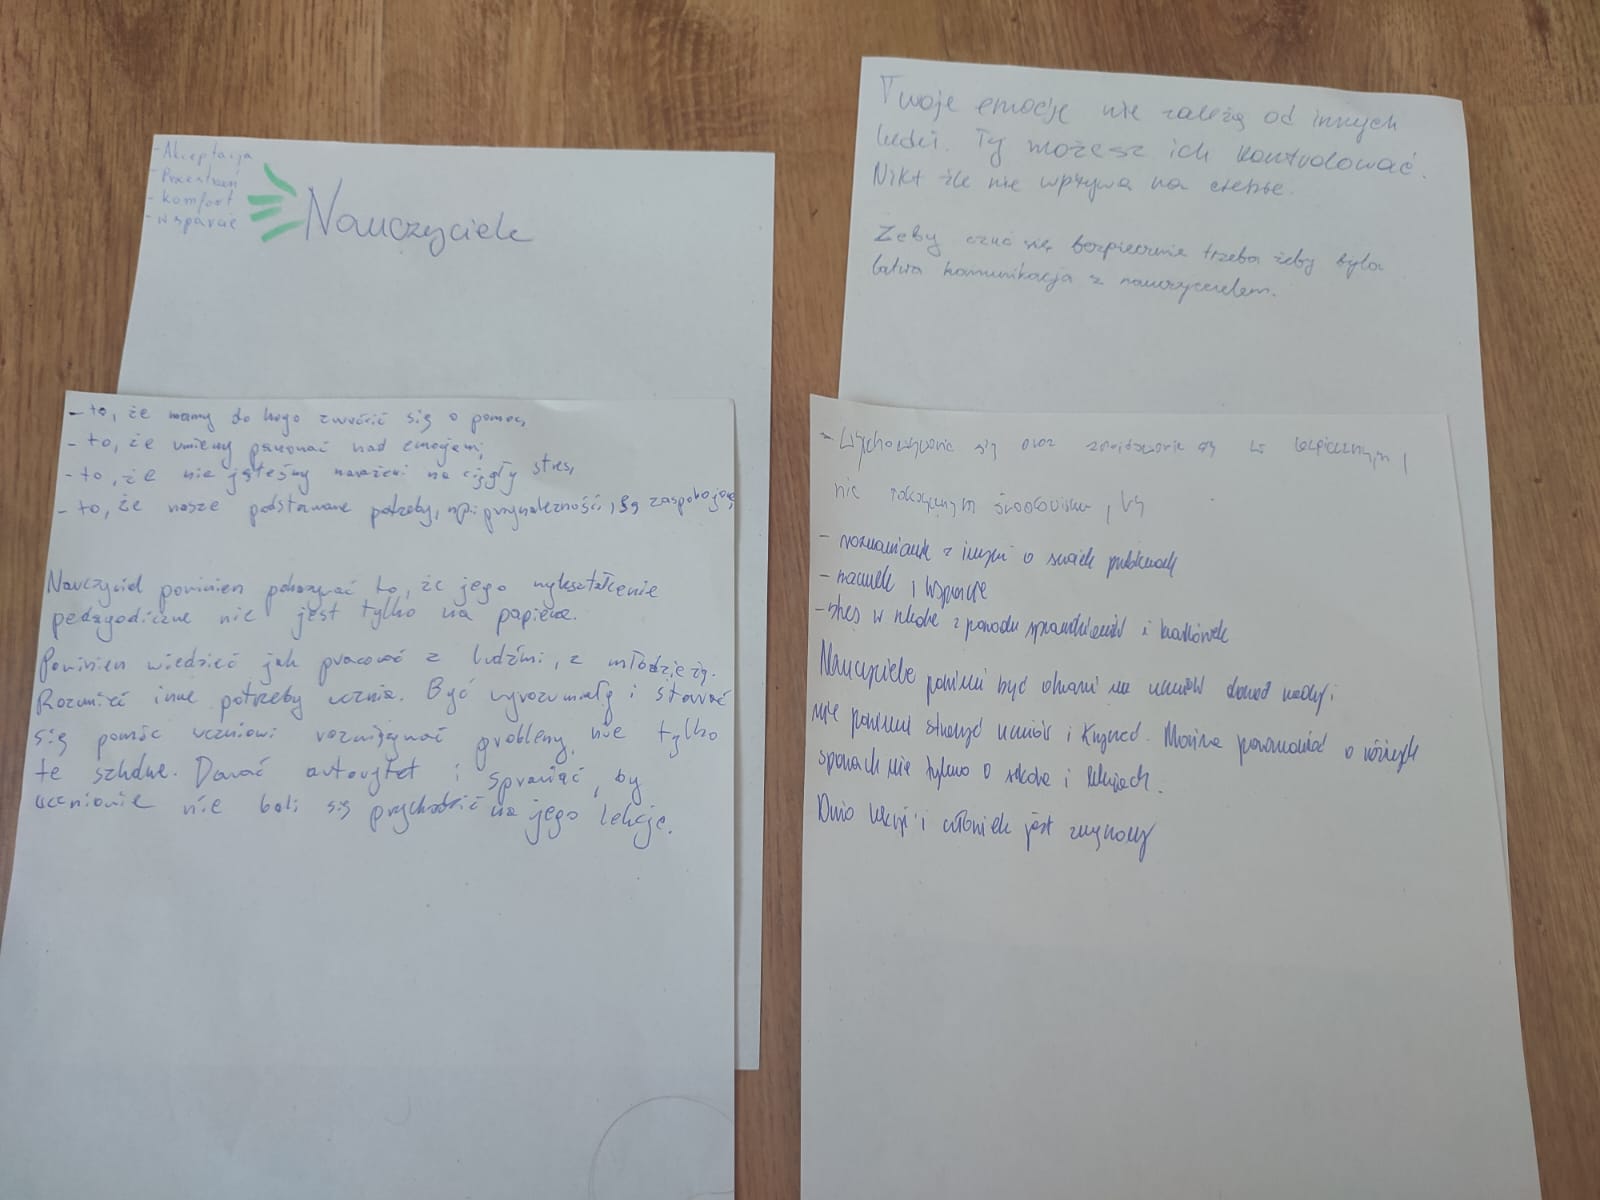 - Akceptacja
- Przestrzeń
- komfort
- wsparcie
Nauczyciele
- to, że mamy do kogo zwrócić się o pomoc,
- to, że umiemy panować nad emocjami,
- to, że nie jesteśmy narażeni na ciągły stres,
- to, że nasze podstawowe potrzeby, np. przynależność, są zaspokojone,
Nauczyciel powinien pokazywać to, że jego wykształcenie
pedagogiczne nie jest tylko na papierze.
Powinien wiedzieć jak pracować z ludźmi, z młodzieżą.
Rozumieć inne potrzeby ucznia. Być wyrozumiały i starać
się pomóc uczniowi rozwiązywać problemy, nie tylko
te szkolne. Dawać autorytet i sprawiać, by
uczniowie nie bali się przychodzić na jego lekcje.
Twoje emocje nie zależą od innych
ludzi. Ty możesz ich kontrolować.
Nikt źle nie wpływa na ciebie.
Żeby czuć się bezpiecznie trzeba żeby była
łatwa komunikacja z nauczycielem.
- Wychowywanie się oraz znajdowanie się w bezpiecznym,
nie toksycznym środowisku,
- rozmawianie z innymi o swoich problemach
- szacunek i wsparcie
- stres w szkole z powodu sprawdzianów i kartkówek
Nauczyciele powinni być otwarci na uczniów dawać
nie powinni straszyć uczniów i krzyczeć. Można porozmawiać o różnych
sprawach nie tylko o szkole i lekcjach.
Dużo lekcji i człowiek jest zmęczony